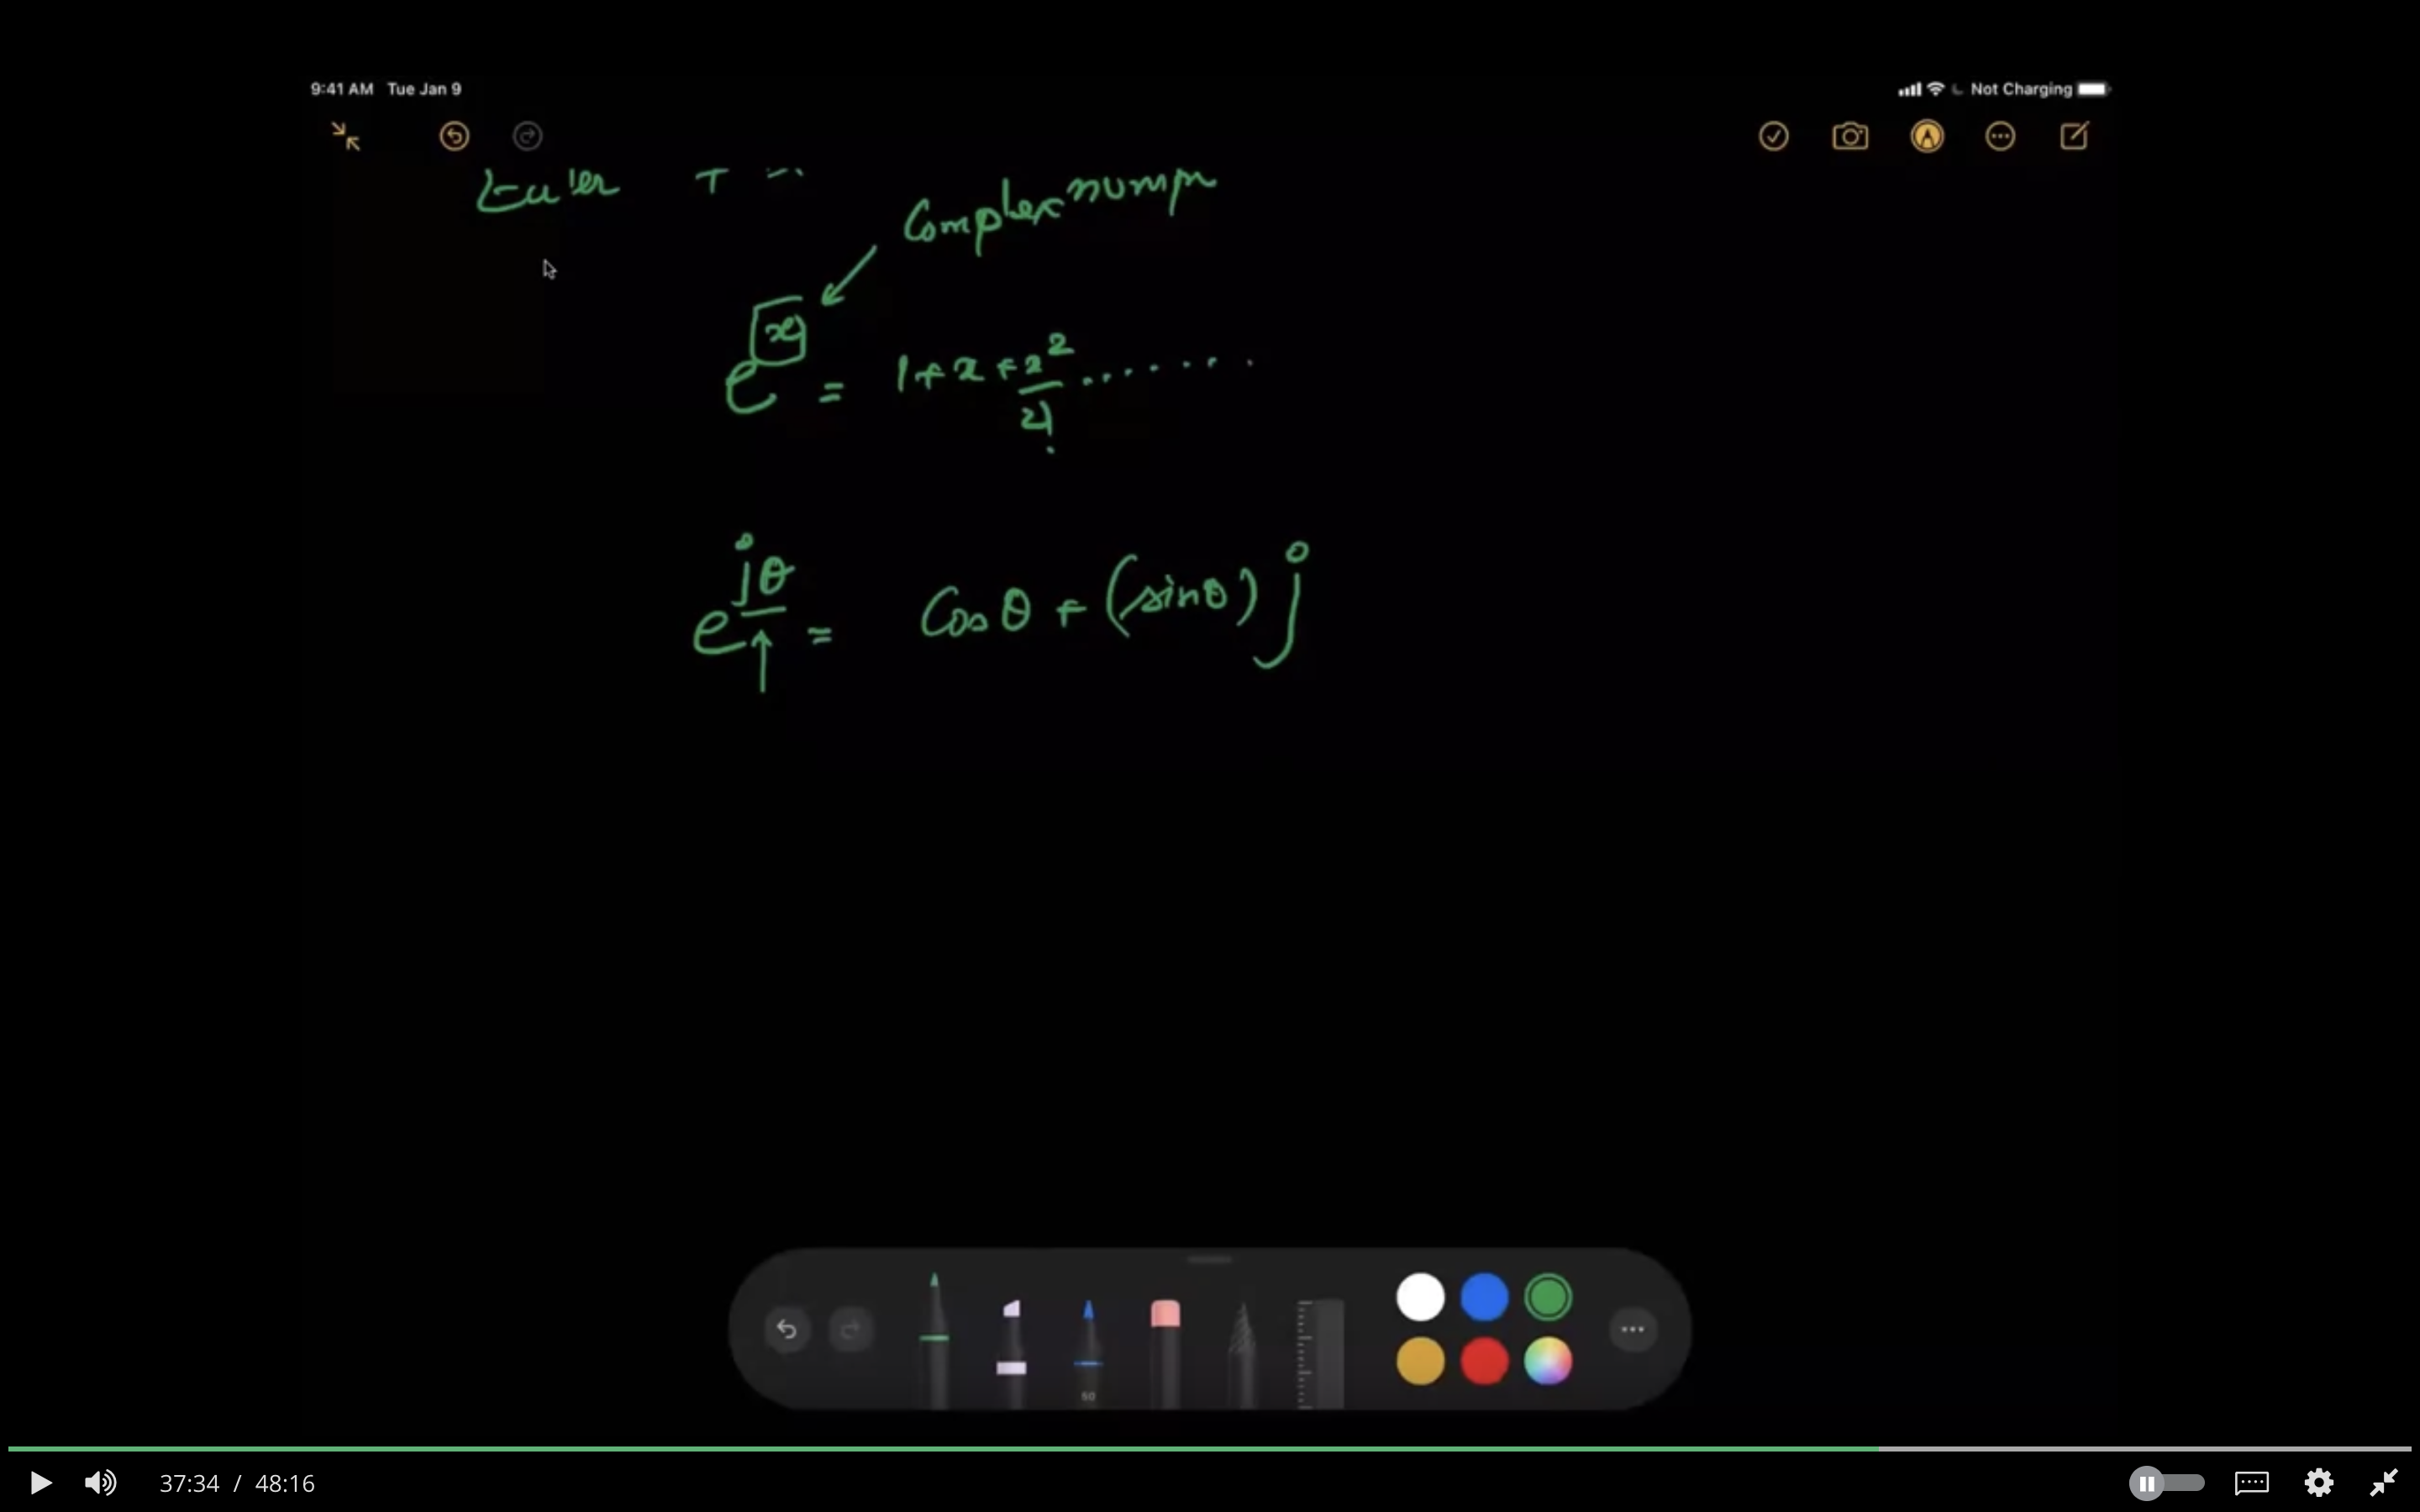 9:41 AM Tue Jan 9
Not Charging
Euler
Complex
e^x = 1 + x + x^2/2! .......
e^jθ = Cos θ + (sin θ) j
50
37:34 / 48:16